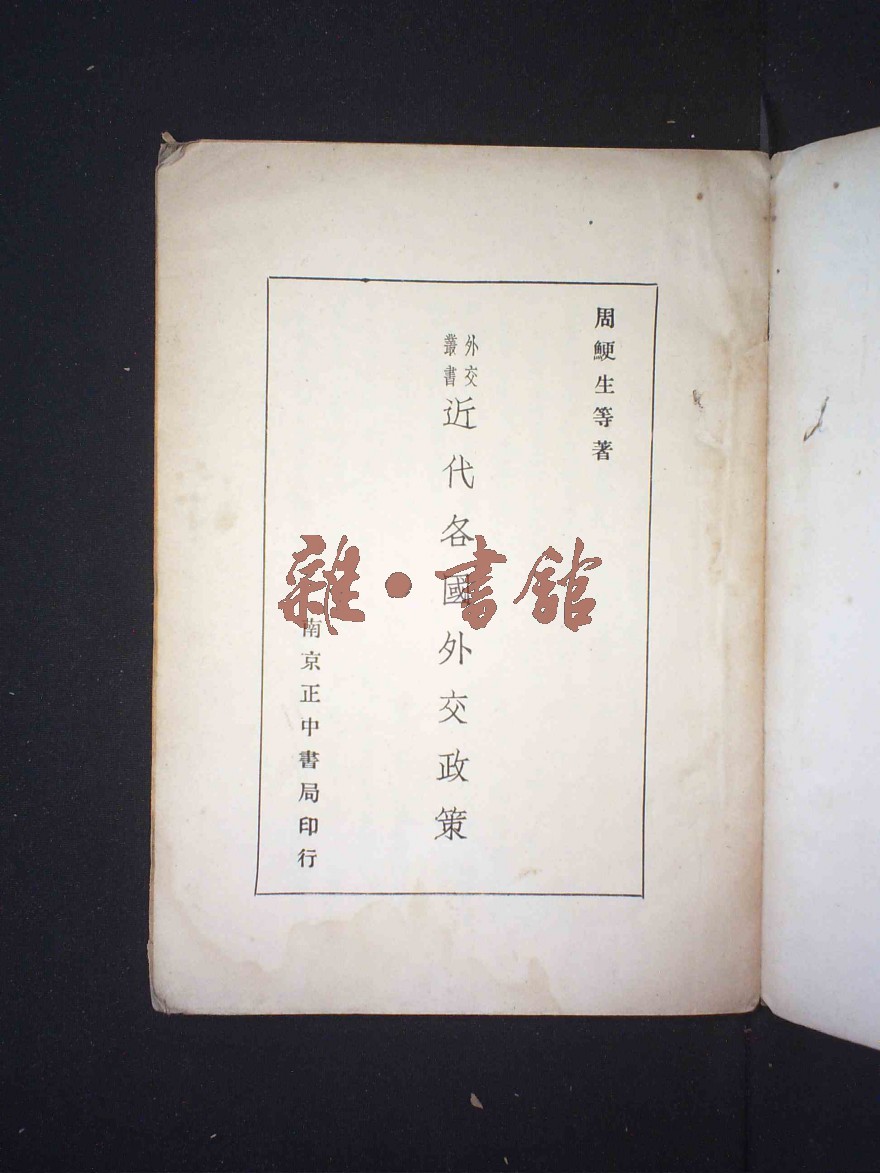 周鯁生等著
外交
叢書
近代各國外交政策
南京正中書局印行
雜·書館